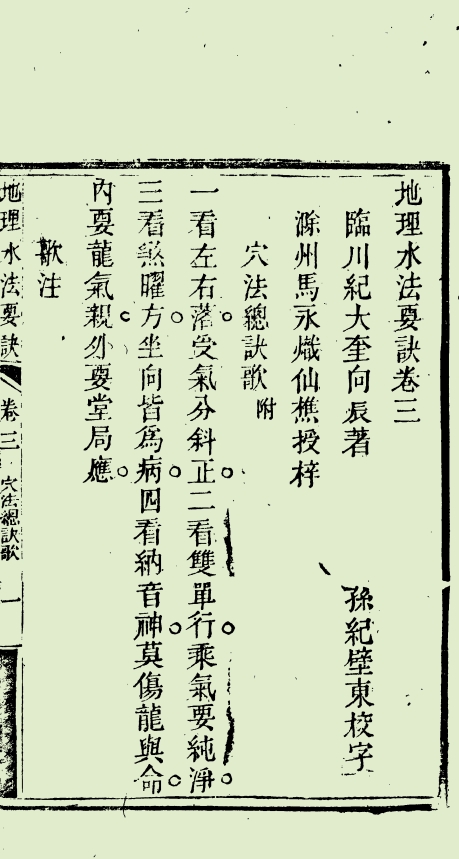 地理水法要訣卷三
臨川紀大奎向辰著　孫紀壁東校字
滁州馬永熾仙樵授梓
穴法總訣歌附
一看左右落。受氣分斜正。二看雙單行。乘氣要純淨。
三看煞曜方。坐向皆為病。四看納音神。莫傷龍與命。
內要龍氣親。外要堂局應。
歌注
地理水法要訣　卷三　穴法總訣歌　一